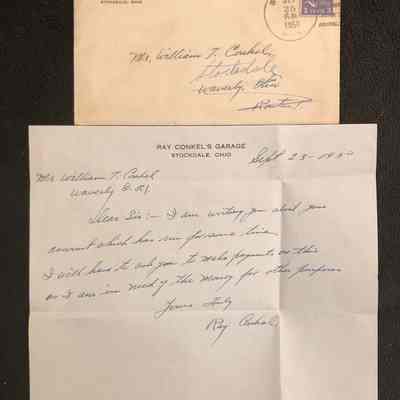 STOCKDALE, OHIO
SEP
25
AM
195
3
Mr. William T. Conkel
Stockdale
Waverly, Ohio
Route 1
RAY CONKEL'S GARAGE
STOCKDALE, OHIO
Sept 25-195
Mr. William T. Conkel
Waverly O. R1.
Dear Sir:- I am writing you about your
account which has run for some time.
I will have to ask you to make payments on this
as I am in need of the money for other purposes
Yours Truly
Ray Conkel